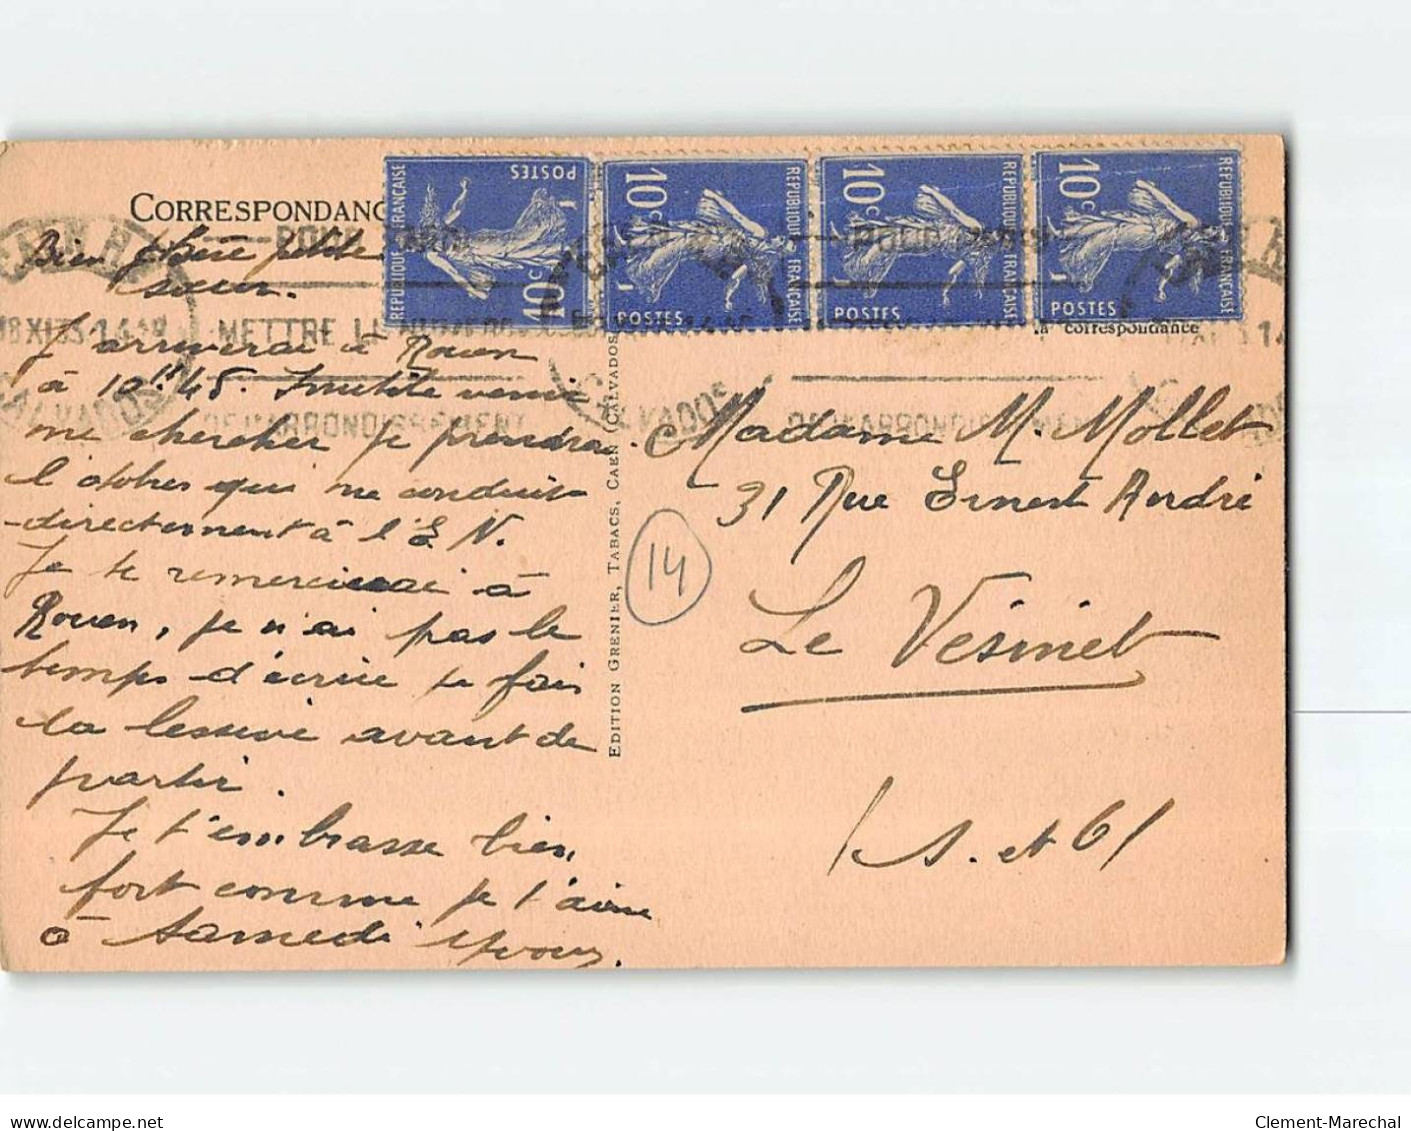 CORRESPONDANC
Bien chère petite
soeur.
J'arriverai à Rouen
à 10h45. Inutile venir
me chercher je prendrai
l'autobus qui me conduit
directement à l'E N.
Je te remercierai à
Rouen, je n'ai pas le
temps d'écrire je fais
la lessive avant de
partir.
Je t'embrasse bien
fort comme je t'aime
à samedi
RÉPUBLIQUE FRANÇAISE
POSTES
10c
10c
RÉPUBLIQUE FRANÇAISE
POSTES
10c
RÉPUBLIQUE FRANÇAISE
POSTES
10c
RÉPUBLIQUE FRANÇAISE
POSTES
POUR
METTRE LE NUMERO
DE L'ARRONDISSEMENT
CALVADOS
la correspondance
EDITION GRENIER, TABACS, CAEN (CALVADOS
Madame M. Mollet
31 Rue Ernest André
Le Vésinet
(S. et O)
14
delcampe.net
Clement-Marechal